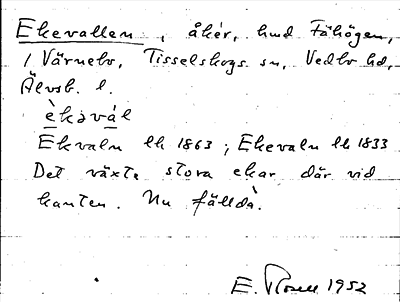 Ekevallen, åker, hmd Fähögen,
1 Värnebo, Tisselskogs sn, Vedbo hd,
Älvsb. l.
èkəvál
Ekvaln lk 1863; Ekevaln lk 1833
Det växte stora ekar där vid
kanten. Nu fällda.
E. Rosell 1952